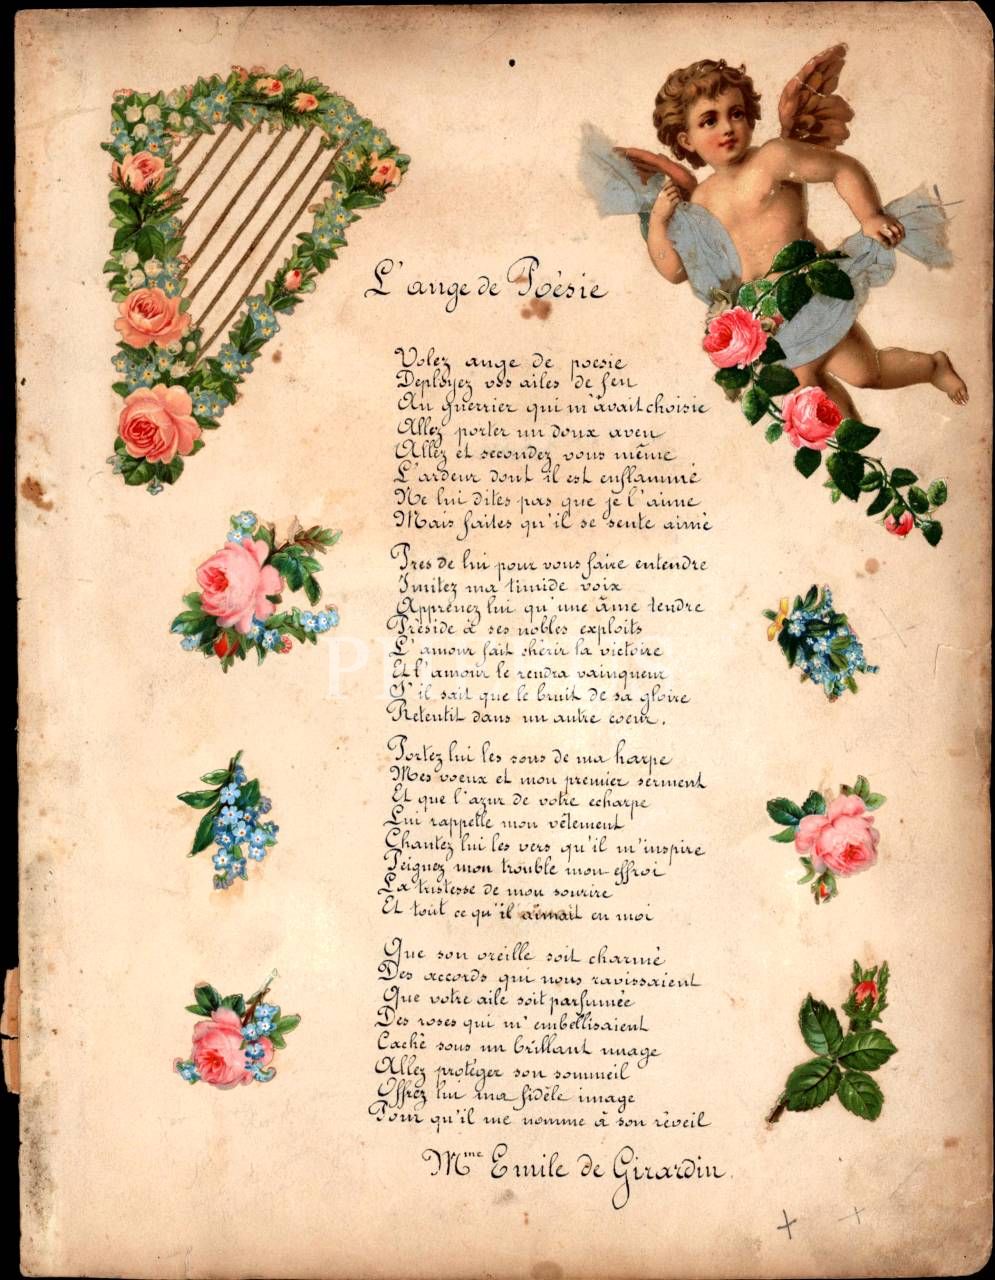 L'ange de Poësie
Volez ange de poesie
Deployez vos ailes de feu
Au guerrier qui m'avait choisie
Allez porter un doux aveu
Allez et secondez vous même
L'ardeur dont il est enflammé
Ne lui dites pas que je l'aime
Mais faites qu'il se sente aimé
Pres de lui pour vous faire entendre
Imitez ma timide voix
Apprenez lui qu'une âme tendre
Préside à ses nobles exploits
L'amour fait chérir la victoire
Et l'amour le rendra vainqueur
S'il sait que le bruit de sa gloire
Retentit dans un autre coeur.
Portez lui les sons de ma harpe
Mes voeux et mon premier serment
Et que l'azur de votre echarpe
Lui rappelle mon vêtement
Chantez lui les vers qu'il m'inspire
Peignez mon trouble mon effroi
La tristesse de mon sourire
Et tout ce qu'il aimait en moi
Que son oreille soit charmé
Des accords qui nous ravissaient
Que votre aile soit parfumée
Des roses qui m'embellisaient
Caché sous un brillant nuage
Allez protéger son sommeil
Offrez lui ma fidèle image
Pour qu'il me nomme à son réveil
Mme Emile de Girardin.